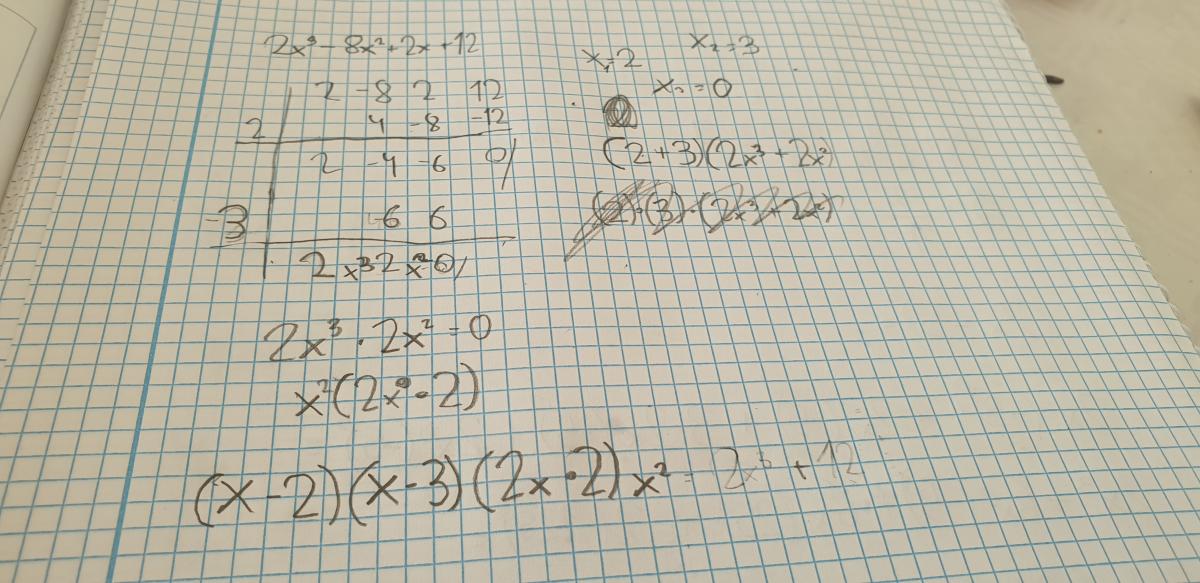 2x³ - 8x² + 2x + 12
2 -8 2 12
2 4 -8 -12
2 -4 -6 0
-3 -6 6
2x³ 2x² 0
2x³ · 2x² = 0
x²(2x · 2)
(x-2)(x-3)(2x·2)x² = 2x³ + 12
x₁=2 x₂=3
=0
(2+3)(2x³+2x²)